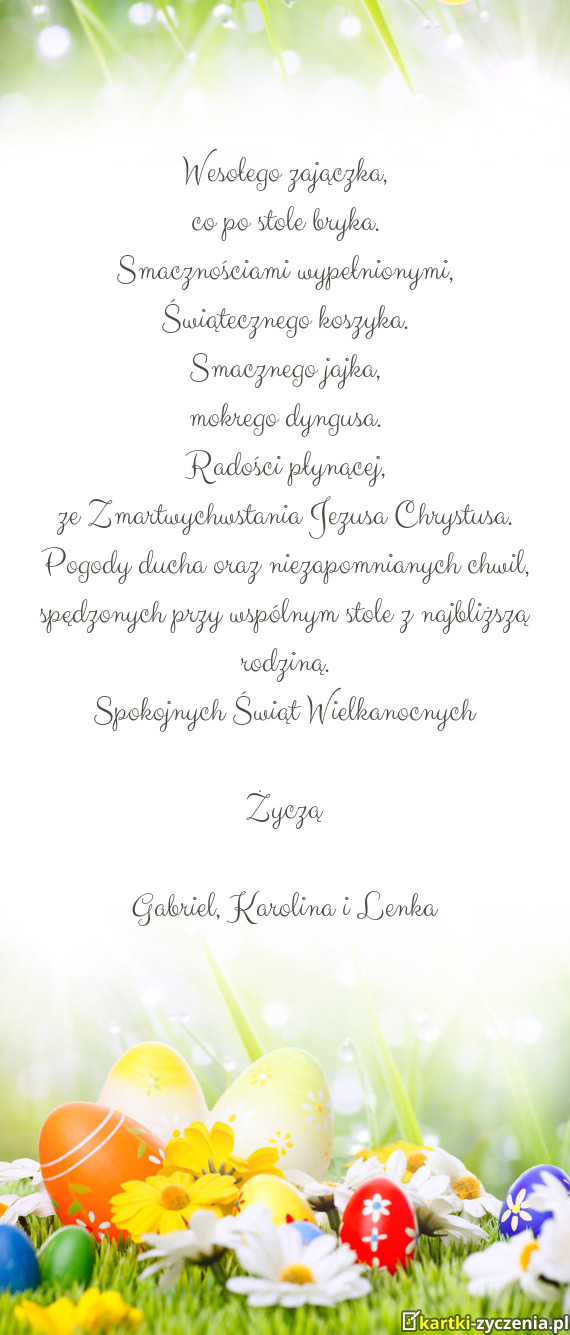 Wesołego zajączka,
co po stole bryka.
Smacznościami wypełnionymi,
Świątecznego koszyka.
Smacznego jajka,
mokrego dyngusa.
Radości płynącej,
ze Zmartwychwstania Jezusa Chrystusa.
Pogody ducha oraz niezapomnianych chwil,
spędzonych przy wspólnym stole z najbliższą
rodziną.
Spokojnych Świąt Wielkanocnych
Życzą
Gabriel, Karolina i Lenka
kartki-zyczenia.pl